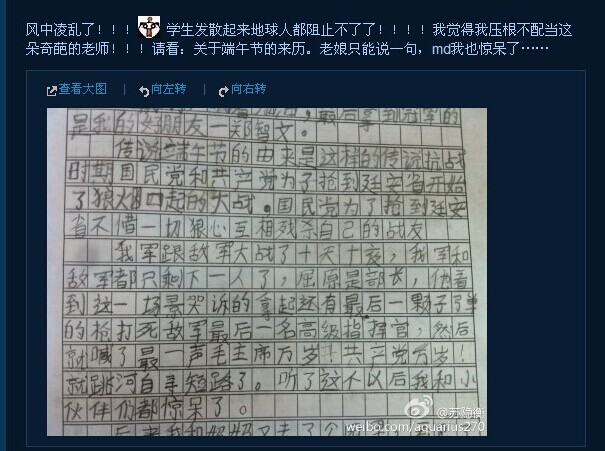 风中凌乱了！！！ 学生发散起来地球人都阻止不了了！！！！我觉得我压根不配当这
朵奇葩的老师！！！请看：关于端午节的来历。老娘只能说一句，md我也惊呆了……
查看大图 | 向左转 | 向右转
最后拿到冠军的
是我的好朋友一郑智文。
传说端午节的由来是这样的传说抗战
时期国民党和共产党为了抢到延安省开始
了狼烟四起的大战。国民党为了抢到延安
省不惜一切狠心互相残杀自己的战友
我军跟敌军大战了十天十夜，我军和
敌军都只剩下一人了，屈原是部长，他看
到这一场景哭诉的拿起还有最后一颗子弹
的枪打死敌军最后一名高级指挥官，然后
就喊了最一声毛主席万岁！共产党万岁！
就跳河自寻短路了。听了这个以后我和小
伙伴们都惊呆了。
@苏隐衡
weibo.com/aquarius270